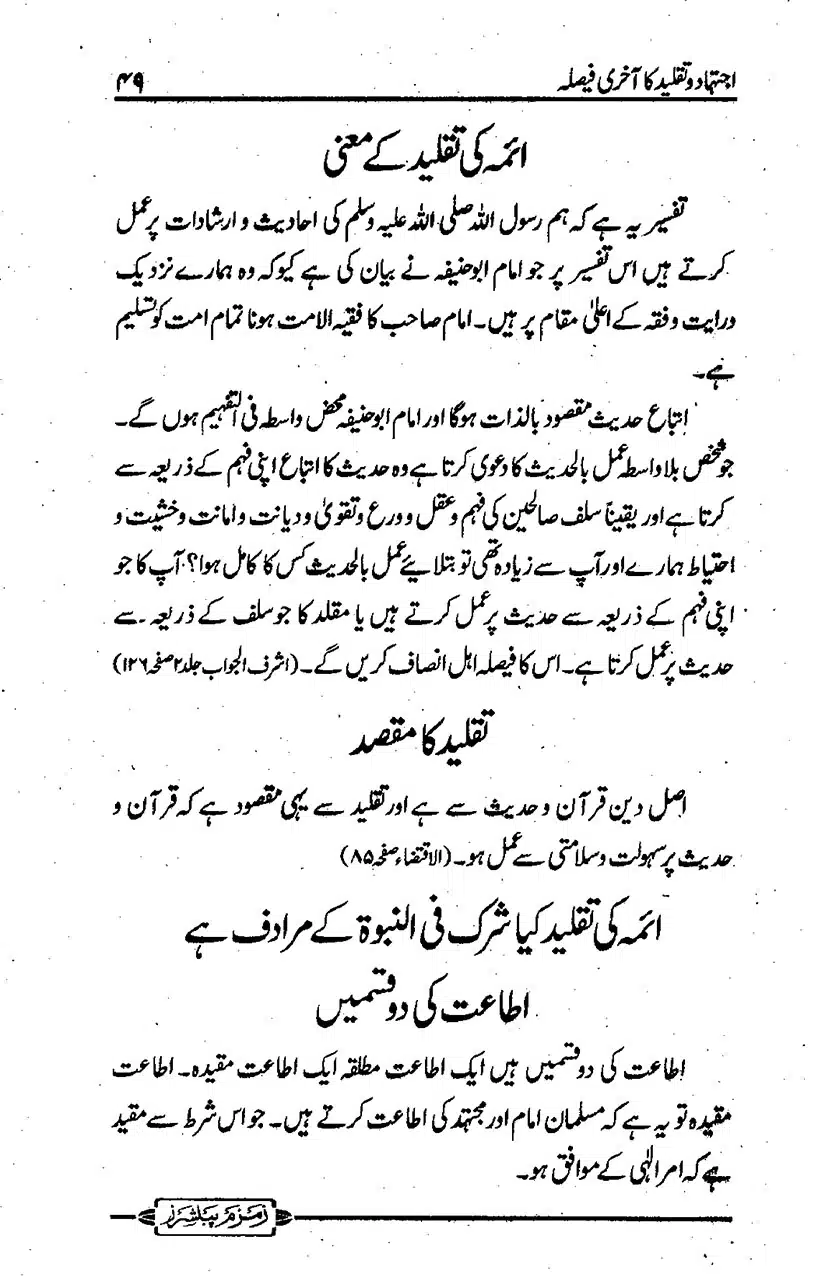 اجتہاد و تقلید کا آخری فیصلہ ۴۹
ائمہ کی تقلید کے معنی
تفسیر یہ ہے کہ ہم رسول اللہ صلی اللہ علیہ وسلم کی احادیث و ارشادات پر عمل
کرتے ہیں اس تفسیر پر جو امام ابوحنیفہ نے بیان کی ہے کیوکہ وہ ہمارے نزدیک
درایت و فقہ کے اعلیٰ مقام پر ہیں۔ امام صاحب کا فقیہ الامت ہونا تمام امت کو تسلیم
ہے۔
اتباع حدیث مقصود بالذات ہوگا اور امام ابوحنیفہ محض واسطہ فی التفہیم ہوں گے۔
جو شخص بلا واسطہ عمل بالحدیث کا دعوی کرتا ہے وہ حدیث کا اتباع اپنی فہم کے ذریعہ سے
کرتا ہے اور یقیناً سلف صالحین کی فہم و عقل و ورع و تقویٰ و دیانت و امانت و خشیت و
احتیاط ہمارے اور آپ سے زیادہ تھی تو بتلائیے عمل بالحدیث کس کا کامل ہوا؟ آپ کا جو
اپنی فہم کے ذریعہ سے حدیث پر عمل کرتے ہیں یا مقلد کا جو سلف کے ذریعہ سے
حدیث پر عمل کرتا ہے۔ اس کا فیصلہ اہل انصاف کریں گے۔ (اشرف الجواب جلد ۲ صفحہ ۱۲۶)
تقلید کا مقصد
اصل دین قرآن و حدیث سے ہے اور تقلید سے یہی مقصود ہے کہ قرآن و
حدیث پر سہولت و سلامتی سے عمل ہو۔ (الاقتضاء صفحہ ۸۵)
ائمہ کی تقلید کیا شرک فی النبوۃ کے مرادف ہے
اطاعت کی دو قسمیں
اطاعت کی دو قسمیں ہیں ایک اطاعت مطلقہ ایک اطاعت مقیدہ۔ اطاعت
مقیدہ تو یہ ہے کہ مسلمان امام اور مجتہد کی اطاعت کرتے ہیں۔ جو اس شرط سے مقید
ہے کہ امر الٰہی کے موافق ہو۔
زمزم پبلشرز